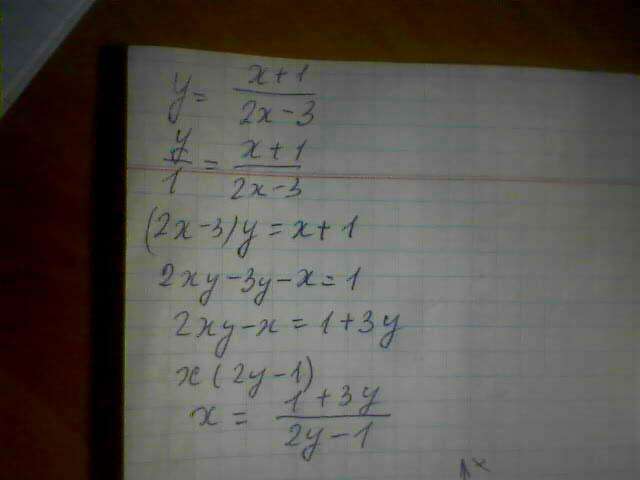 y = \frac{x+1}{2x-3}
\frac{y}{1} = \frac{x+1}{2x-3}
(2x-3)y = x+1
2xy-3y-x=1
2xy-x=1+3y
x(2y-1)
x = \frac{1+3y}{2y-1}